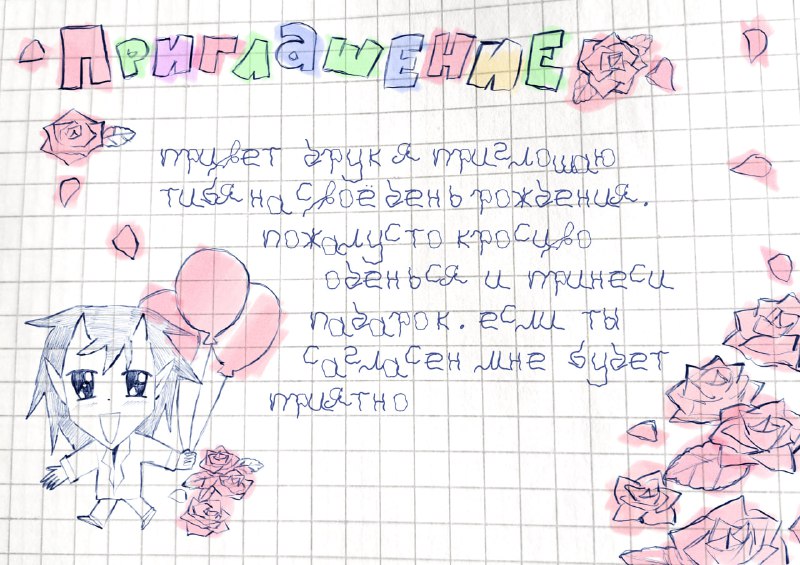 Приглашение
привет друк я приглошаю
тибя на своё день рождения.
пожалусто кросиво
оденься и принеси
падарок. если ты
сагласен мне будет
приятно